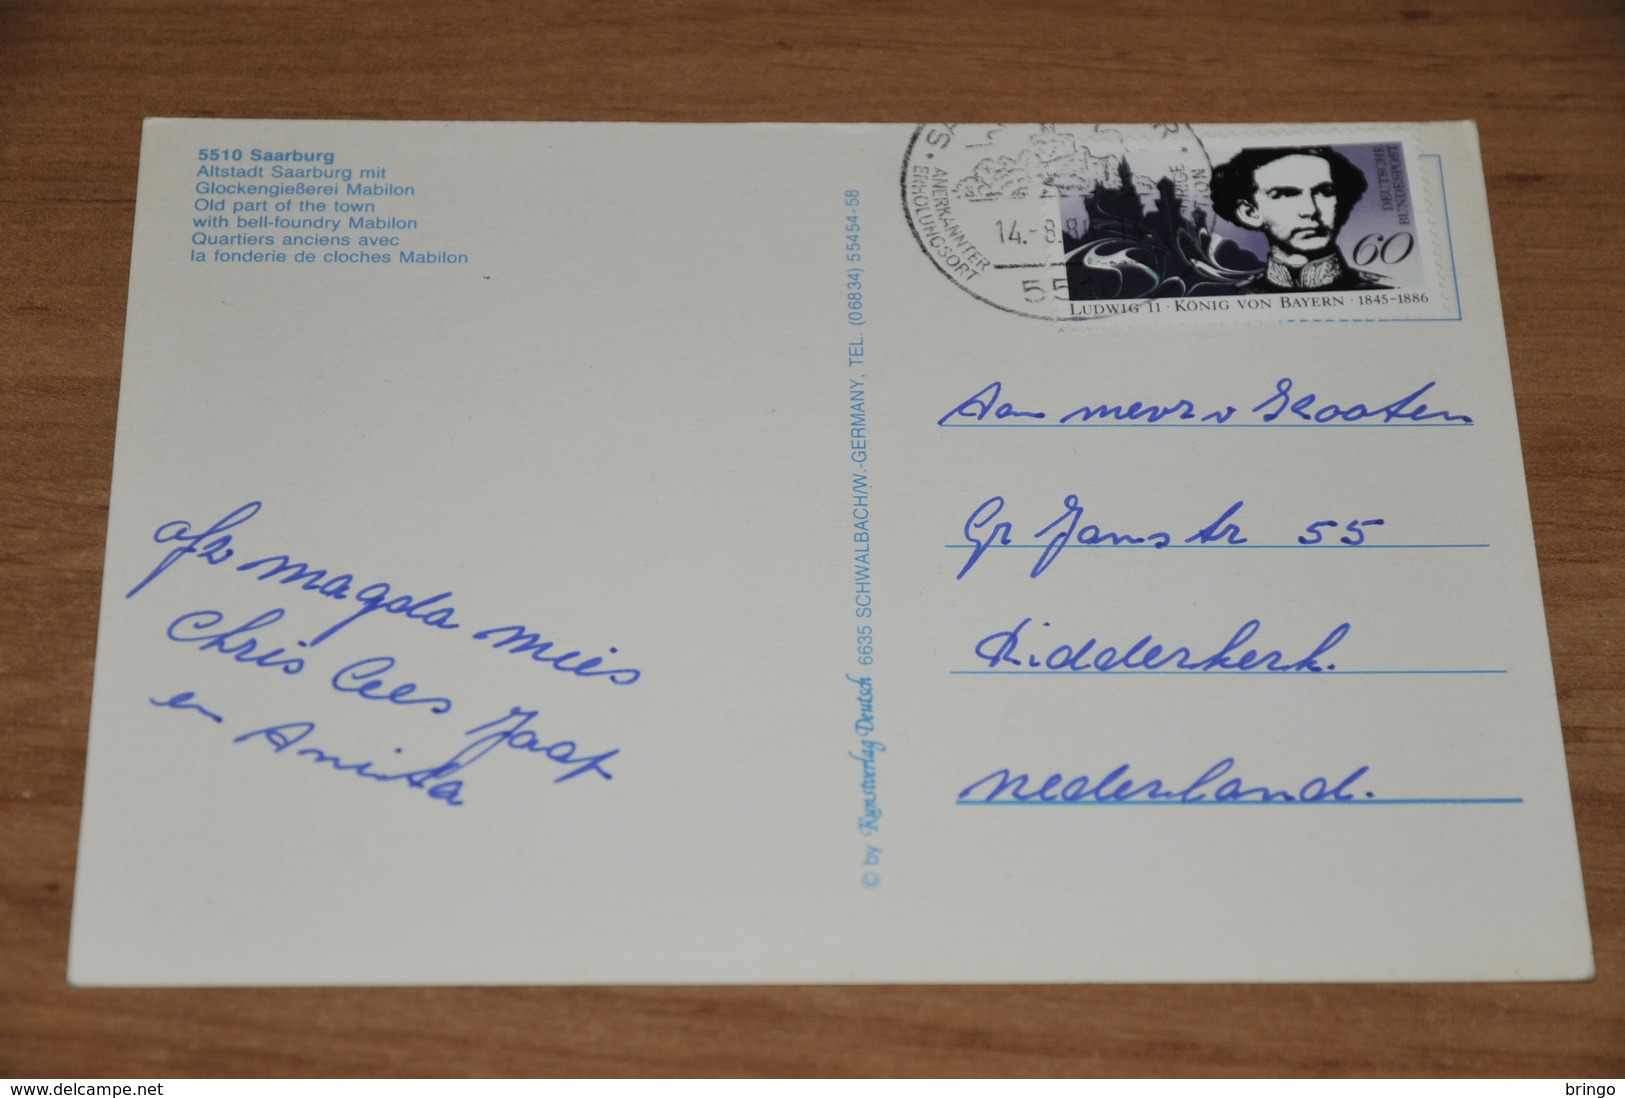 5510 Saarburg
Altstadt Saarburg mit
Glockengießerei Mabilon
Old part of the town
with bell-foundry Mabilon
Quartiers anciens avec
la fonderie de cloches Mabilon
ANERKANNTER
ERHOLUNGSORT
14.-8.8
55
DEUTSCHE
BUNDESPOST
60
LUDWIG II · KÖNIG VON BAYERN · 1845-1886
© by Kunstverlag Deutsch 6635 SCHWALBACH/W.-GERMANY, TEL. (06834) 55454-58
Aan mevr v Skooten
Gr Jans tr 55
Ridderkerk.
nederland.
afz magda mies
Chris Cees Jaap
en Anita
delcampe.net
bringo